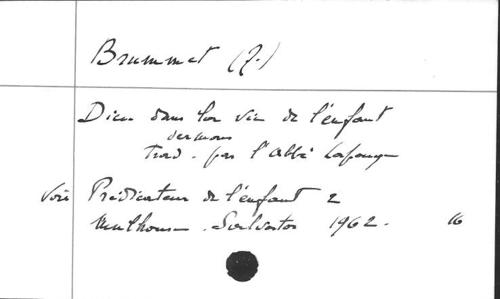 Brummet (J.)
Dieu dans la vie de l'enfant
sermons
Trad. par l'Abbé
voir Prédicateur de l'enfant 2
Mulhouse. Salvator 1962. 16